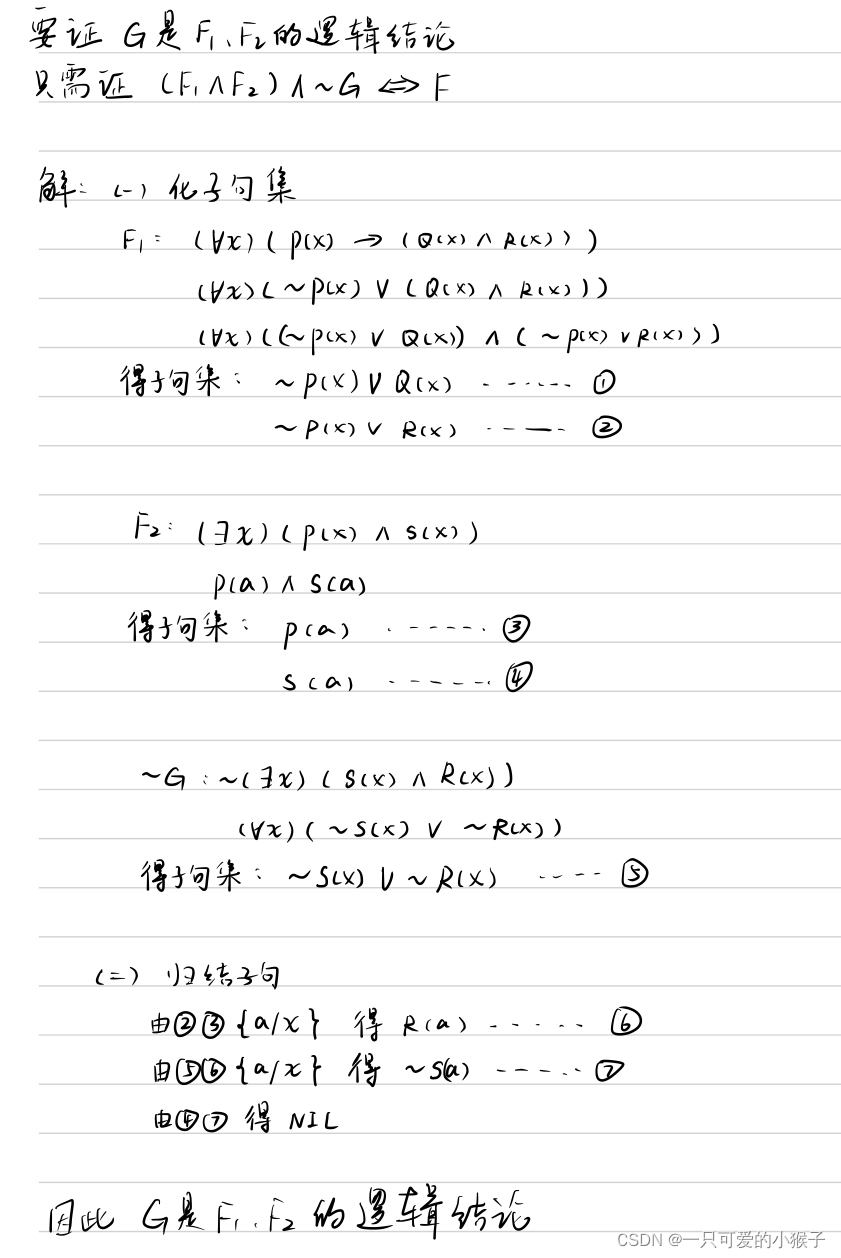 要证 G是 F₁、F₂的逻辑结论
只需证 (F₁∧F₂)∧~G ⇔ F
解: (一) 化子句集
F₁: (∀x)(P(x) → (Q(x) ∧ R(x)))
(∀x)(~P(x) ∨ (Q(x) ∧ R(x)))
(∀x)((~P(x) ∨ Q(x)) ∧ (~P(x) ∨ R(x)))
得子句集: ~P(x) ∨ Q(x) ······ ①
~P(x) ∨ R(x) ······ ②
F₂: (∃x)(P(x) ∧ S(x))
P(a) ∧ S(a)
得子句集: P(a) ······ ③
S(a) ······ ④
~G: ~(∃x)(S(x) ∧ R(x))
(∀x)(~S(x) ∨ ~R(x))
得子句集: ~S(x) ∨ ~R(x) ····· ⑤
(二) 归结子句
由②③{a/x} 得 R(a) ······ ⑥
由⑤⑥{a/x} 得 ~S(a) ······ ⑦
由④⑦ 得 NIL
因此 G是 F₁、F₂ 的逻辑结论
CSDN @一只可爱的小猴子